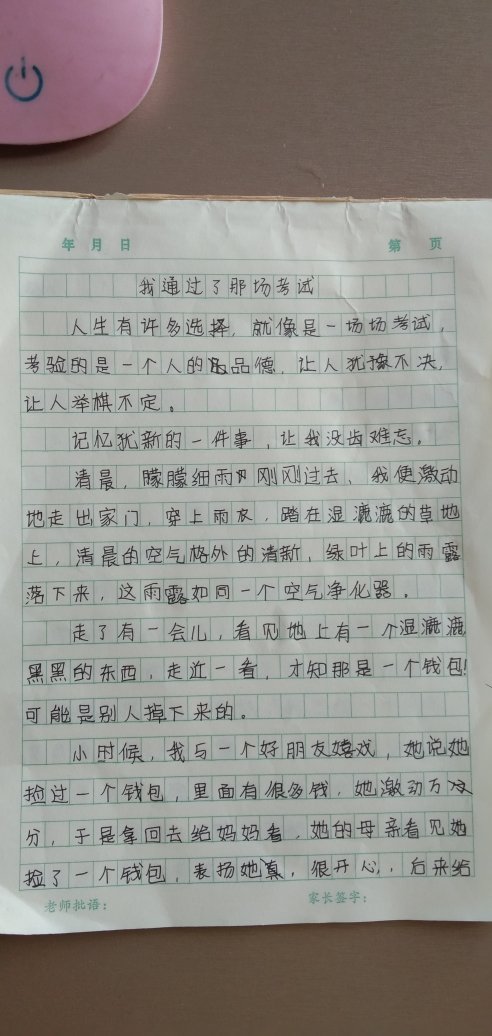 年 月 日 第 页
我通过了那场考试
人生有许多选择,就像是一场场考试,
考验的是一个人的品德,让人犹豫不决,
让人举棋不定。
记忆犹新的一件事,让我没齿难忘。
清晨,朦朦细雨刚刚过去、我便激动
地走出家门,穿上雨衣,踏在湿漉漉的草地
上,清晨的空气格外的清新,绿叶上的雨露
落下来,这雨露如同一个空气净化器。
走了有一会儿,看见地上有一个湿漉漉
黑黑的东西,走近一看,才知那是一个钱包!
可能是别人掉下来的。
小时候,我与一个好朋友嬉戏,她说她
捡过一个钱包,里面有很多钱,她激动万
分,于是拿回去给妈妈看,她的母亲看见她
捡了一个钱包,表扬她真,很开心,后来给
老师批语: 家长签字: